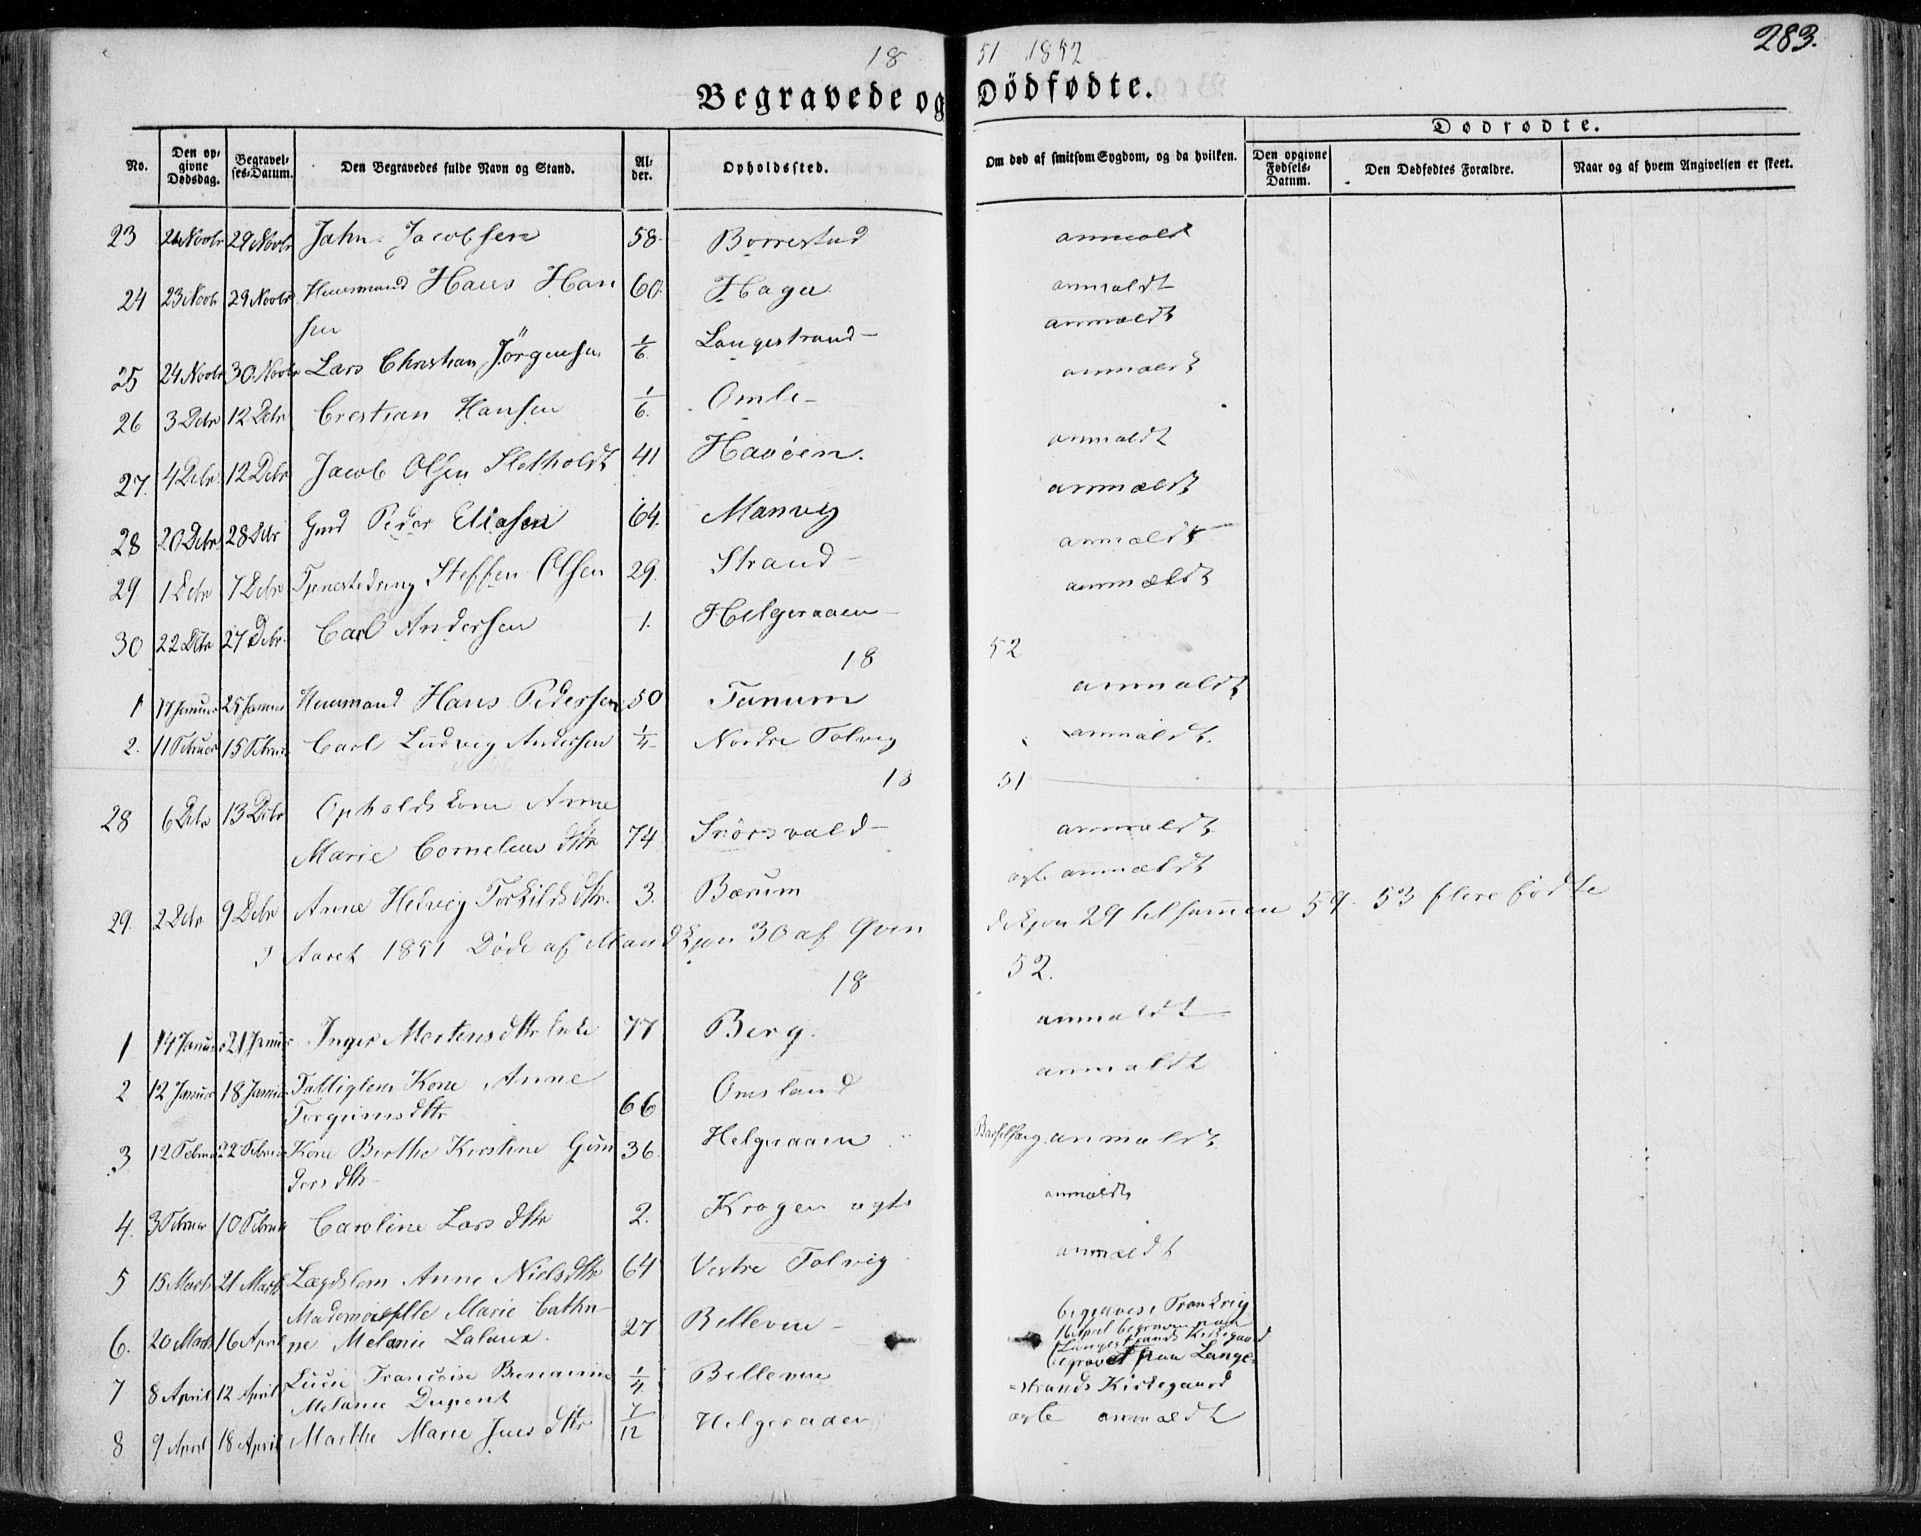 283.
18 51 1852
Begravede og Dödfødte.
Dødfødte.
No. Den opgivne Dødsdag. Begravelses-Datum. Den Begravedes fulde Navn og Stand. Alder. Opholdssted. Om død af smitsom Sygdom, og da hvilken. Den opgivne Fødsels-Datum. Den Dødfødtes Forældre. Naar og af hvem Angivelsen er skeet.
23 29 Novbr Jahn Jacobsen 58 Borrestad anmeldt
24 23 Novbr 29 Novbr Huusmand Hans Han 60 Hagen anmældt
sen
25 24 Novbr 30 Novbr Lars Christian Jörgensen 1/6 Langestrand anmældt
26 3 Debr 12 Debr Crestian Hansen 1/6 Omle anmældt
27. 4 Debr 12 Debr Jacob Olsen Sletholdt 41 Havöen. anmældt
28 20 Debr 28 Debr Gmd Peder Eliasen 64. Manvig anmældt
29 1 Debr 7 Debr Tjenestedreng Steffen Olsen 29. Strand anmældt
30 22 Debr 27 Debr Carl Andersen 1. Helgeraaen anmældt
18 52
1 17 Januar 25 Januar Huusmand Hans Pedersen 50 Tanum anmældt
2. 11 Februar 15 Februar Carl Ludvig Andersen 1/4 Nordre Tolvig anmældt.
18 51
28 6 Debr 13 Debr Opholds Kone Anne
Marie Cornelius dttr 74 anmældt
29. 2 Debr 9 Debr Anne Helvig Torkilds dttr. 3. Bærum anmældt
I Aaret 1851 Døde af Mandkjøn 30 af Qvin dekjøn 29 tilsammen 59. 53 flere fødte
18 52.
1 14 Januar 21 Januar Inger Mortens dttr Enke 77 Berg. anmældt
2 12 Januar 18 Januar Fattiglem Kone Anne
Torgrims dttr 66 Omsland anmældt
3 12 Februar 22 Februar Kone Berthe Kirstine Gun 36 Helgeraaen Barselseng anmældt
ders dttr
4. 3 Februar 10 Februar Caroline Lars dttr 2. Krogen anmældt
5 15 Marts 21 Marts Lægdslem Anne Niels dttr 64 Vestre Tolvig anmældt
6. 20 Marts 16 April Mademoiselle Marie Cathri
ne Melanie 27 Bellevue begraves i Frankrig
16 April begraven paa
Langestrands Kirkegaard
7 8 April 12 April Lucie Francoise Benamine 1/4 Bellevue begravet paa Lange-
Melanie Dupont strands Kirkegaard
8 9 April 18 April Marthe Marie Jens dttr 7/12 Helgeraaen ægte anmældt